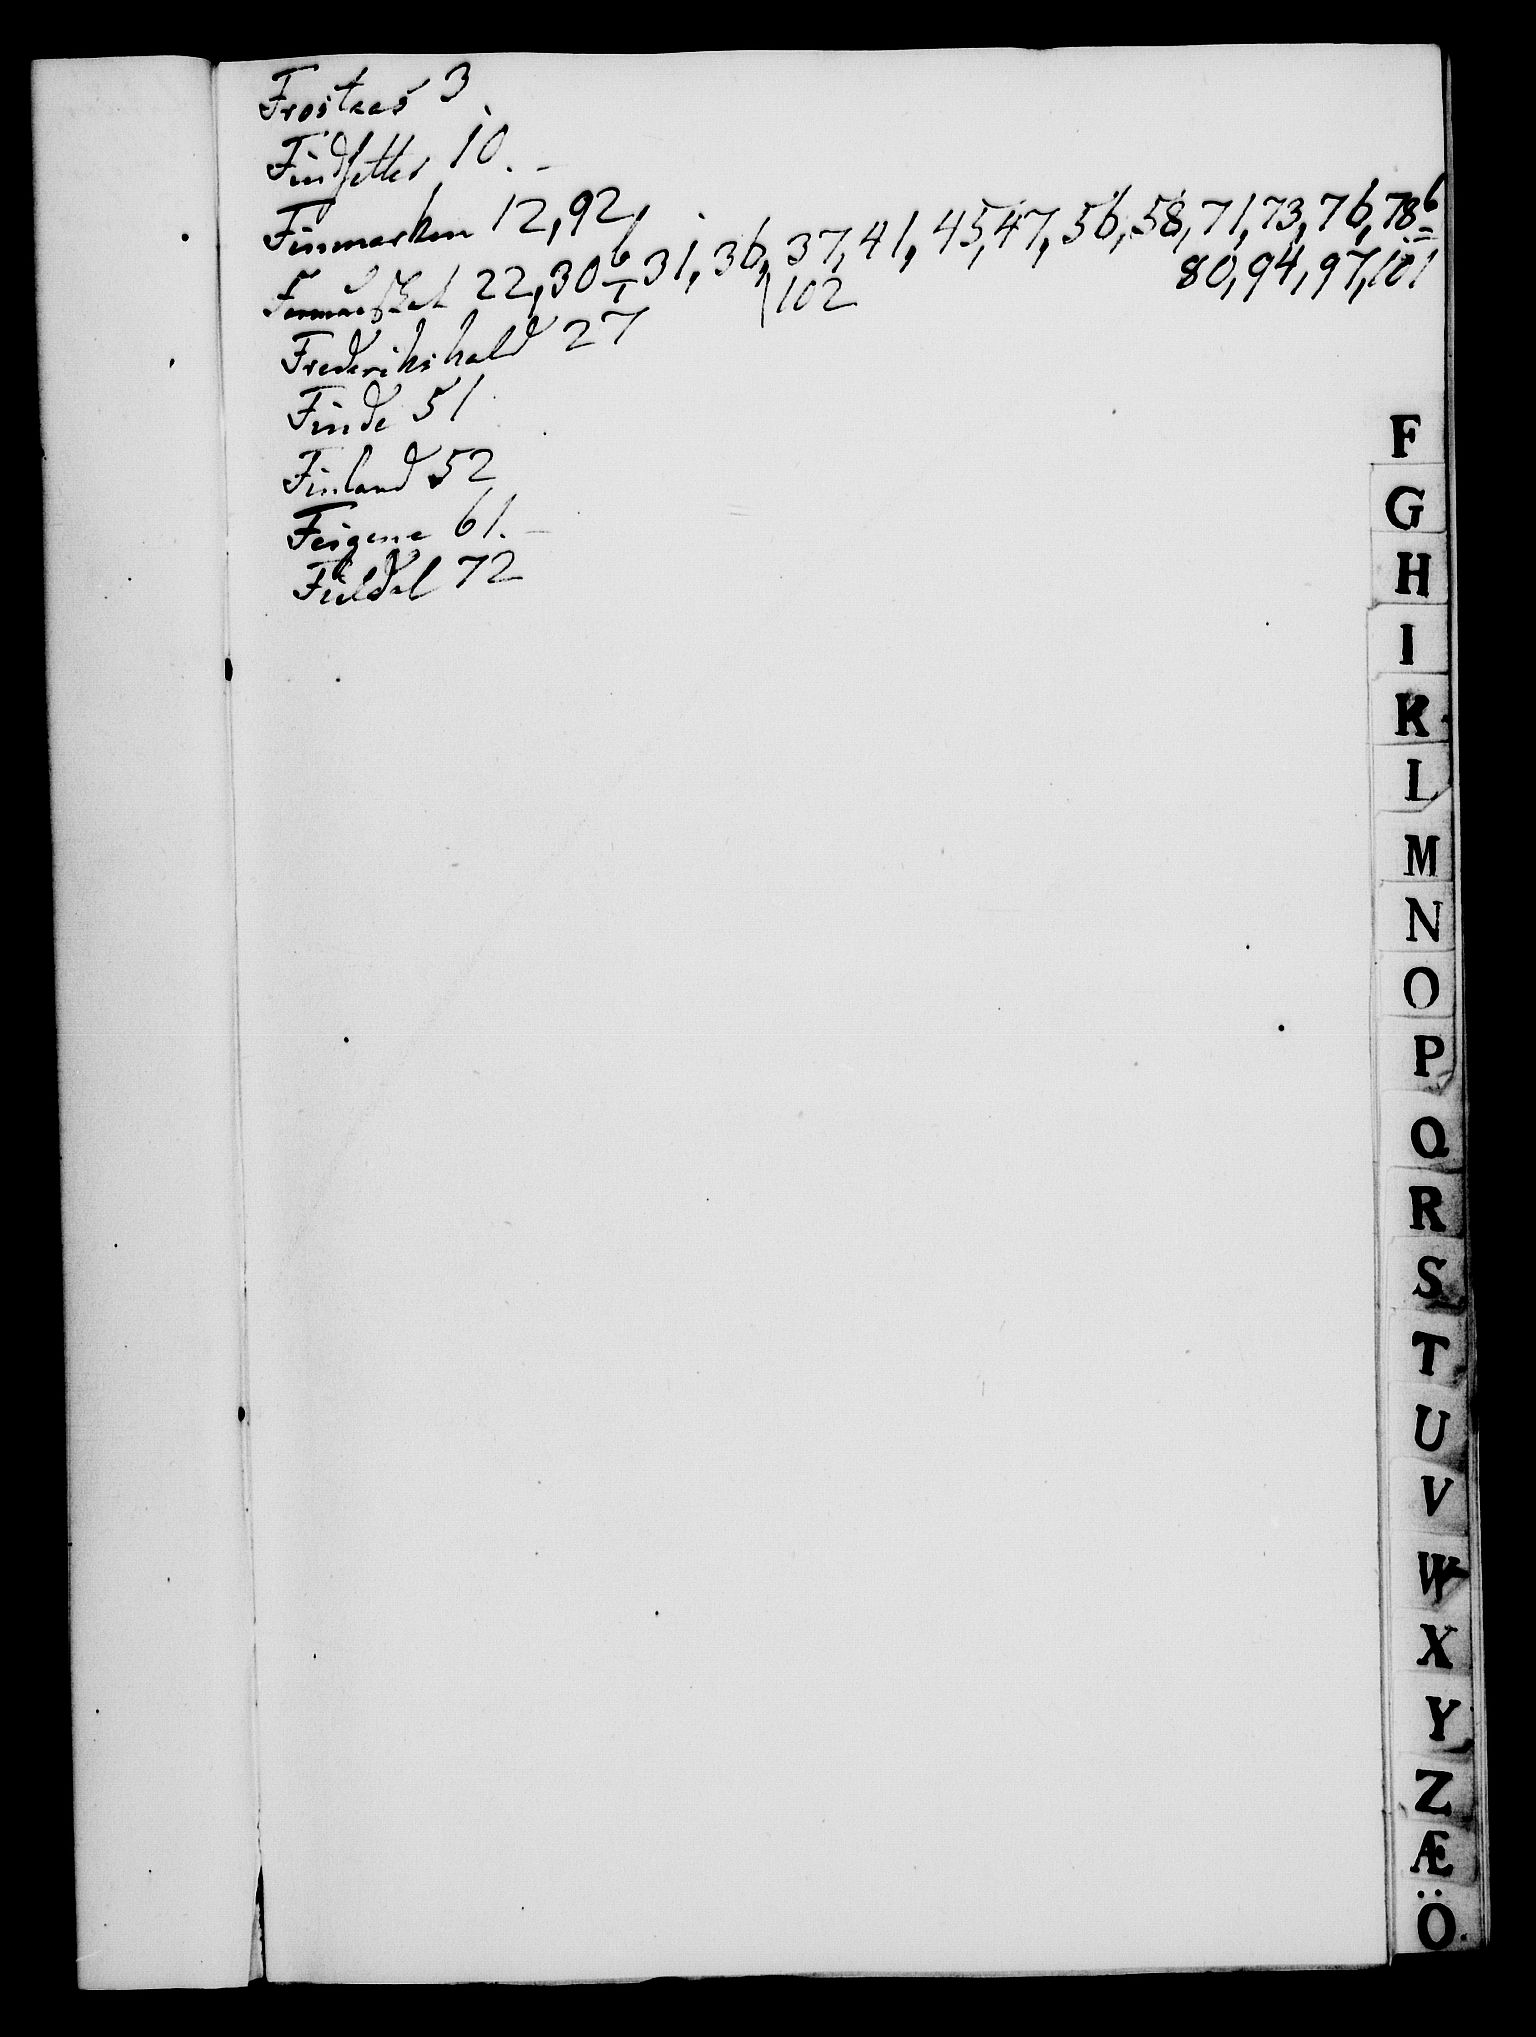 Frostaas 3
Findsetter 10.
Finmarken 12,92,
22,30 b/1 31, 36, 37, 41, 45, 47, 56, 58, 71, 73, 76, 78 b
80, 94, 97, 101
102
Frederikshald 27
Finde 51
Finland 52
Feigene 61.
Fieldal 72
F
G
H
I
K
L
M
N
O
P
Q
R
S
T
U
V
W
X
Y
Z
Æ
Ö